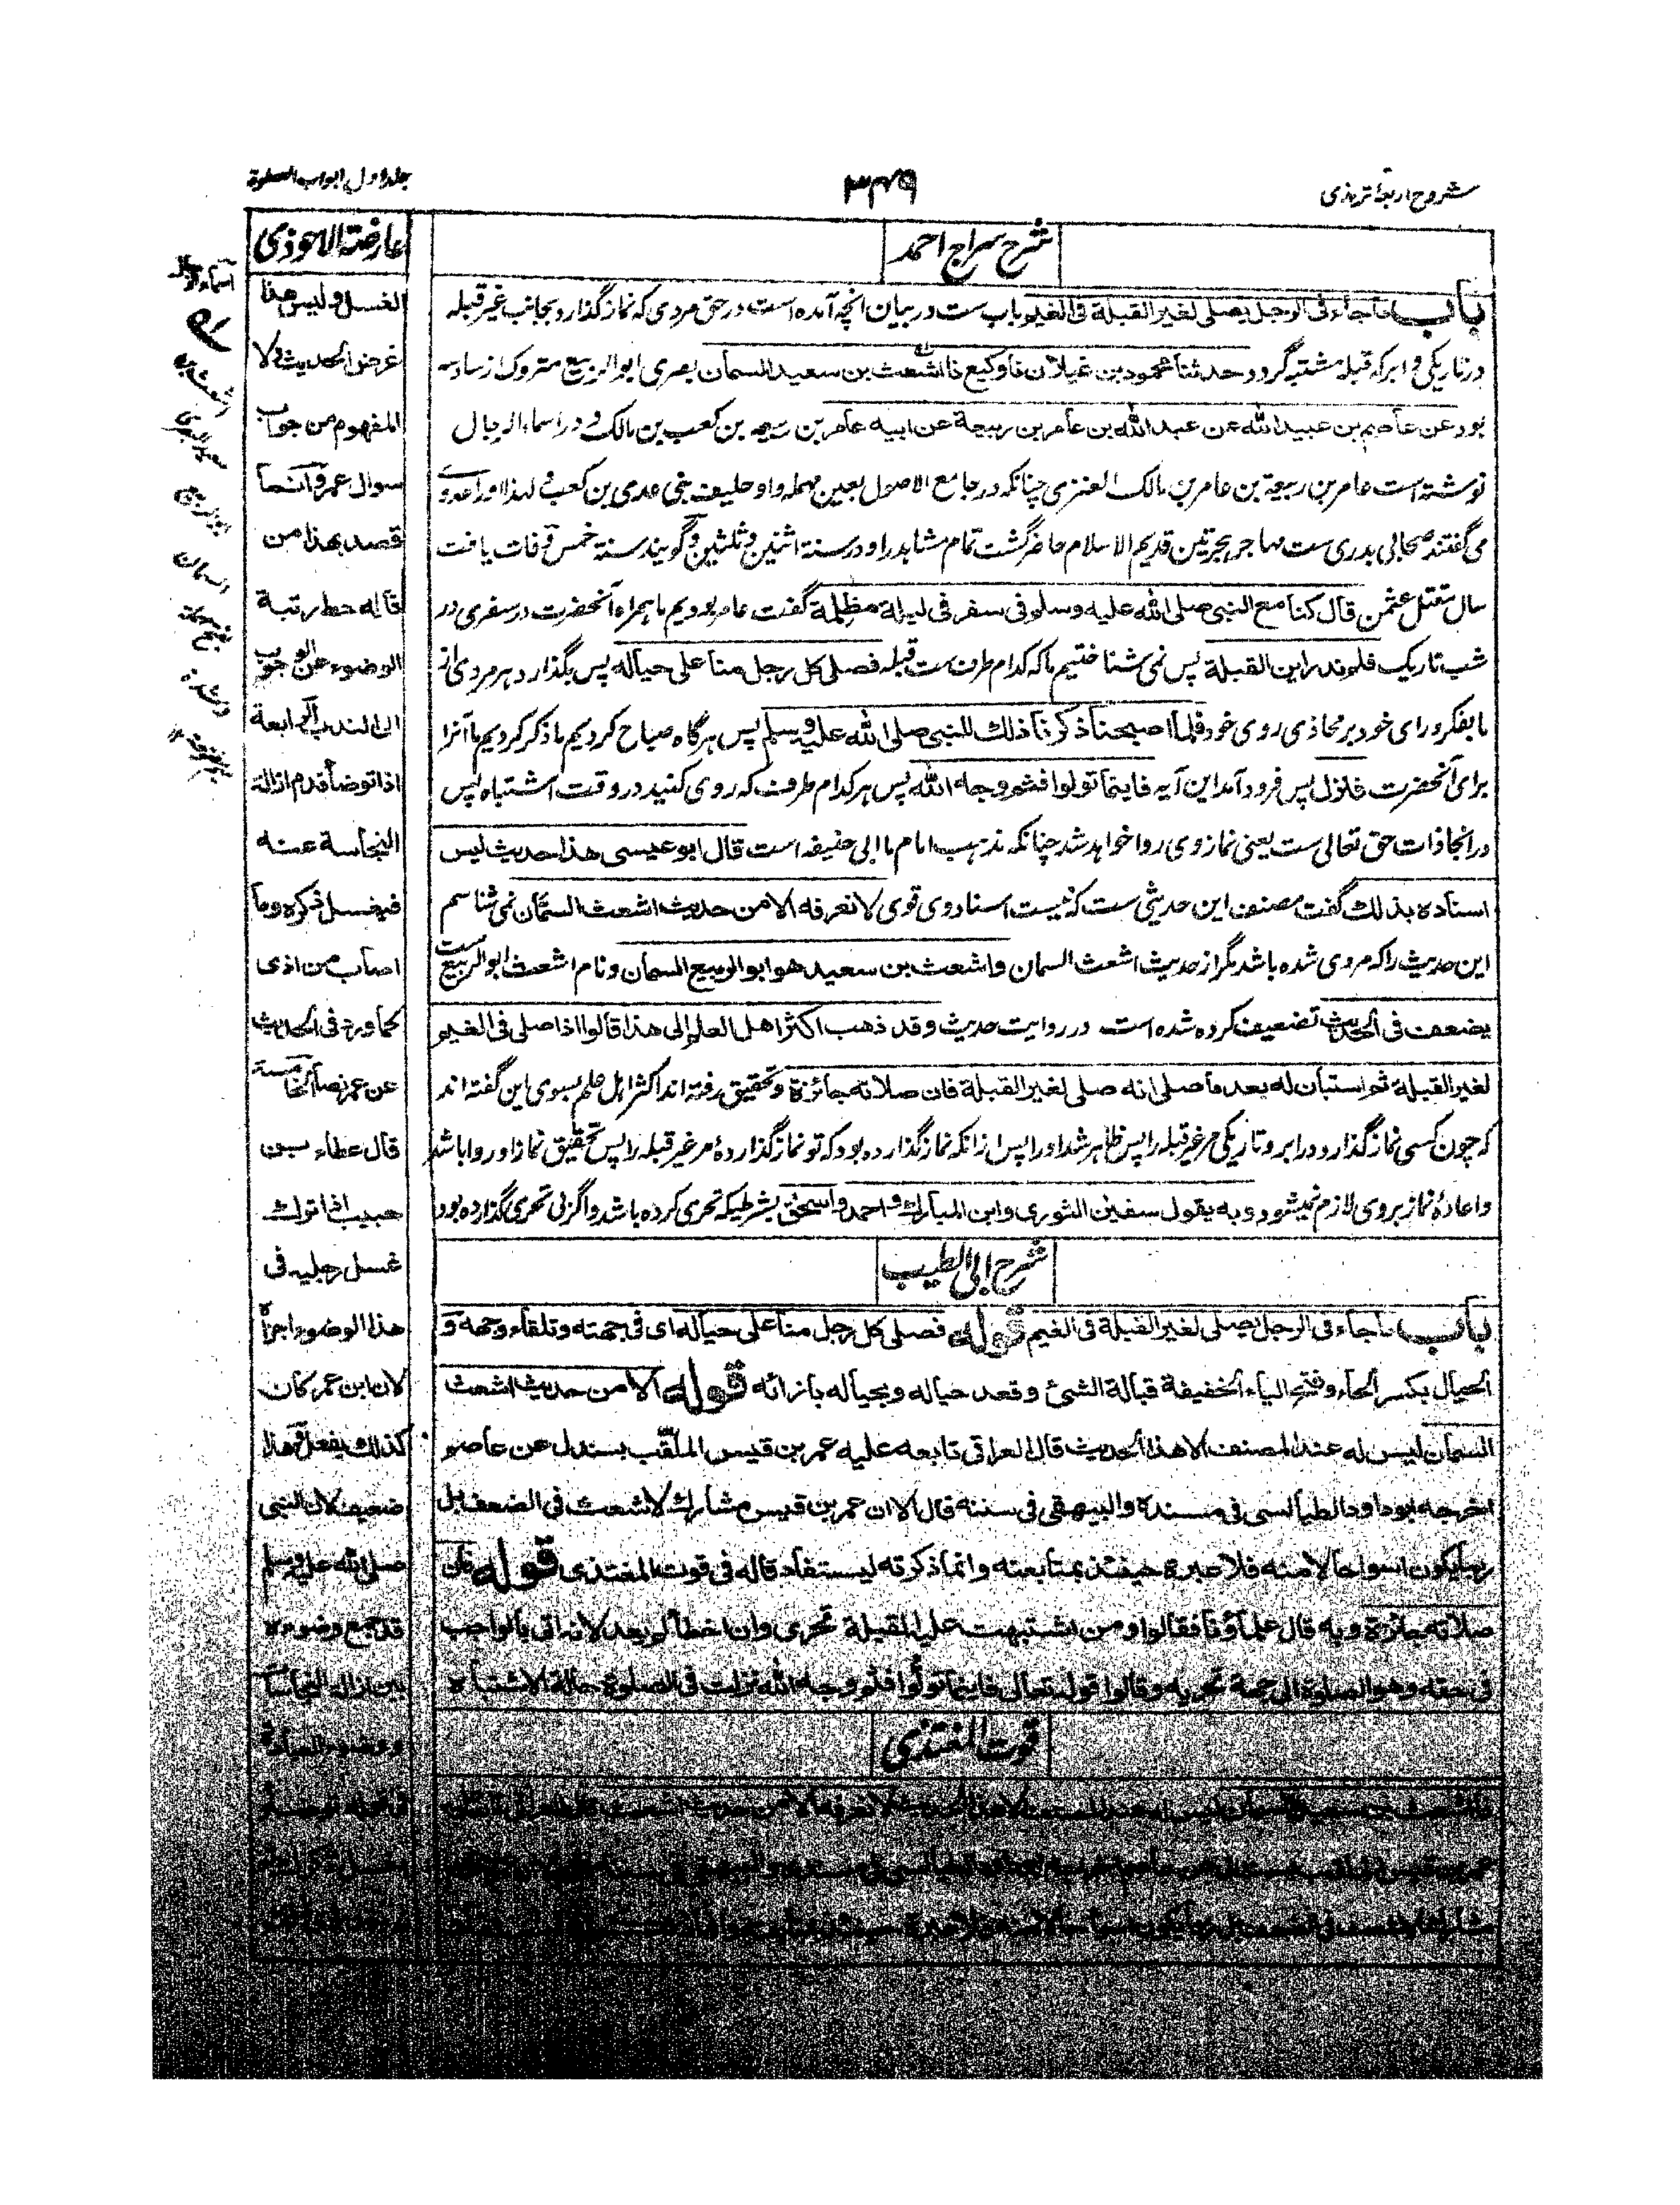 شروح اربعۂ ترمذی
۳۴۹
جلد اول ابواب الصلوة
شرح سراج احمد
باب ما جاء فی الرجل یصلی لغیر القبلة فی الغیم باب ست در بیان انچه آمده است در حق مردی که نماز گذارد بجانب غیر قبله
در تاریکی و ابر که قبله مشتبه گردد حدثنا محمود بن غیلان نا وکیع نا اشعث بن سعید السمان بصری ابو الربیع متروک از سادسه
بود عن عاصم بن عبید الله عن عبد الله بن عامر بن ربیعة عن ابیه عامر بن ربیعه بن کعب بن مالک و در اسماء الرجال
نوشته است عامر بن ربیعة بن عامر بن مالک العنزی چنانکه در جامع الاصول بعین مهمله و او حلیف بنی عدی بن کعب و لهذا او را عدوی
می گفتند صحابی بدری ست مهاجر بهجرتین قدیم الاسلام حاضر گشت تمام مشاهد را و در سنة اثنین و ثلثین و گویند سنة خمس وفات یافت
سال مقتل عثمن قال کنا مع النبی صلی الله علیه وسلم فی سفر فی لیلة مظلمة گفت عامر بودیم ما همراه آنحضرت در سفری در
شب تاریک فلم ندر این القبلة پس نمی شناختیم ما که کدام طرف ست قبله فصلی کل رجل منا علی حیاله پس بگذارد هر مردی از
ما بفکر و رای خود بر محاذی روی خود فلما اصبحنا ذکرنا ذلك للنبی صلی الله علیه وسلم پس هر گاه صباح کردیم ما ذکر کردیم ما آنرا
برای آنحضرت فنزل پس فرود آمد این آیه فاینما تولوا فثم وجه الله پس هر کدام طرف که روی کنید در وقت اشتباه پس
در انجا ذات حق تعالی ست یعنی نماز وی روا خواهد شد چنانکه مذهب امام ما ابی حنیفه است قال ابو عیسی هذا حدیث لیس
اسناده بذلك گفت مصنف این حدیثی ست که نیست اسناد وی قوی لا نعرفه الا من حدیث اشعث السمان نمی شناسم
این حدیث را که مروی شده باشد مگر از حدیث اشعث السمان و اشعث بن سعید هو ابو الربیع السمان و نام اشعث ابو الربیع ست
یضعف فی الحدیث تضعیف کرده شده است در روایت حدیث وقد ذهب اکثر اهل العلم الی هذا قالوا اذا صلی فی الغیم
لغیر القبلة ثم استبان له بعد ما صلی انه صلی لغیر القبلة فان صلاته جائزة و تحقیق رفته اند اکثر اهل علم بسوی این گفته اند
که چون کسی نماز گذارد در ابر و تاریکی مر غیر قبله را پس ظاهر شد او را پس از انکه نماز گذارده بود که تو نماز گذاردهٔ مر غیر قبله را پس تحقیق نماز او روا باشد
و اعادهٔ نماز بروی لازم نمیشود وبه یقول سفین الثوری وابن المبارك واحمد واسحق بشرطیکه تحری کرده باشد و اگر بی تحری گذارده بود
شرح ابی الطیب
باب ما جاء فی الرجل یصلی لغیر القبلة فی الغیم قوله فصلی کل رجل منا علی حیاله ای فی جهته وتلقاء وجهه و
الحیال بکسر الحاء وفتح الیاء الخفیفة قبالة الشئ وقعد حیاله وبحیاله بازائه قوله الا من حدیث اشعث
السمان لیس له عند المصنف الا هذا الحدیث قال العراقی تابعه علیه عمر بن قیس الملقب بسندل عن عاصم
اخرجه ابو داود الطیالسی فی مسنده والبیهقی فی سننه قال الا ان عمر بن قیس مشارك لاشعث فی الضعف بل
ربما یکون اسوا حالا منه فلا عبرة حینئذ بمتابعته وانما ذکرته لیستفاد قاله فی قوت المغتذی قوله فان
صلاته جائزة وبه قال علماؤنا فقالوا ومن اشتبهت علیه القبلة تحری وان اخطأ لم یعد لانه اتی بالواجب
فی حقه وهو الصلوة الی جهة تحریه وقالوا قوله تعالی فاینما تولوا فثم وجه الله نزلت فی الصلوة حالة الاشتباه
قوت المغتذی
عارضة الاحوذی
الغسل ولیس هذا
غرض الحدیث ولا
المفهوم من جواب
سوال عمر وانما
قصد بهذا من
قاله حط رتبة
الوضوء عن الوجوب
الی الندب الرابعة
اذا توضأ قدم ازالة
النجاسة عنه
فیغسل ذکره وما
اصاب من اذی
کما ورد فی الحدیث
عن عمر نصا الخامسة
قال عطاء بن
حبیب اذا ترك
غسل رجلیه فی
هذا الوضوء اجزأه
لان ابن عمر کان
کذلك یفعل وهذا
ضعیف لان النبی
صلی الله علیه وسلم
قد جمع وضوءه
بین ازالة النجاسة